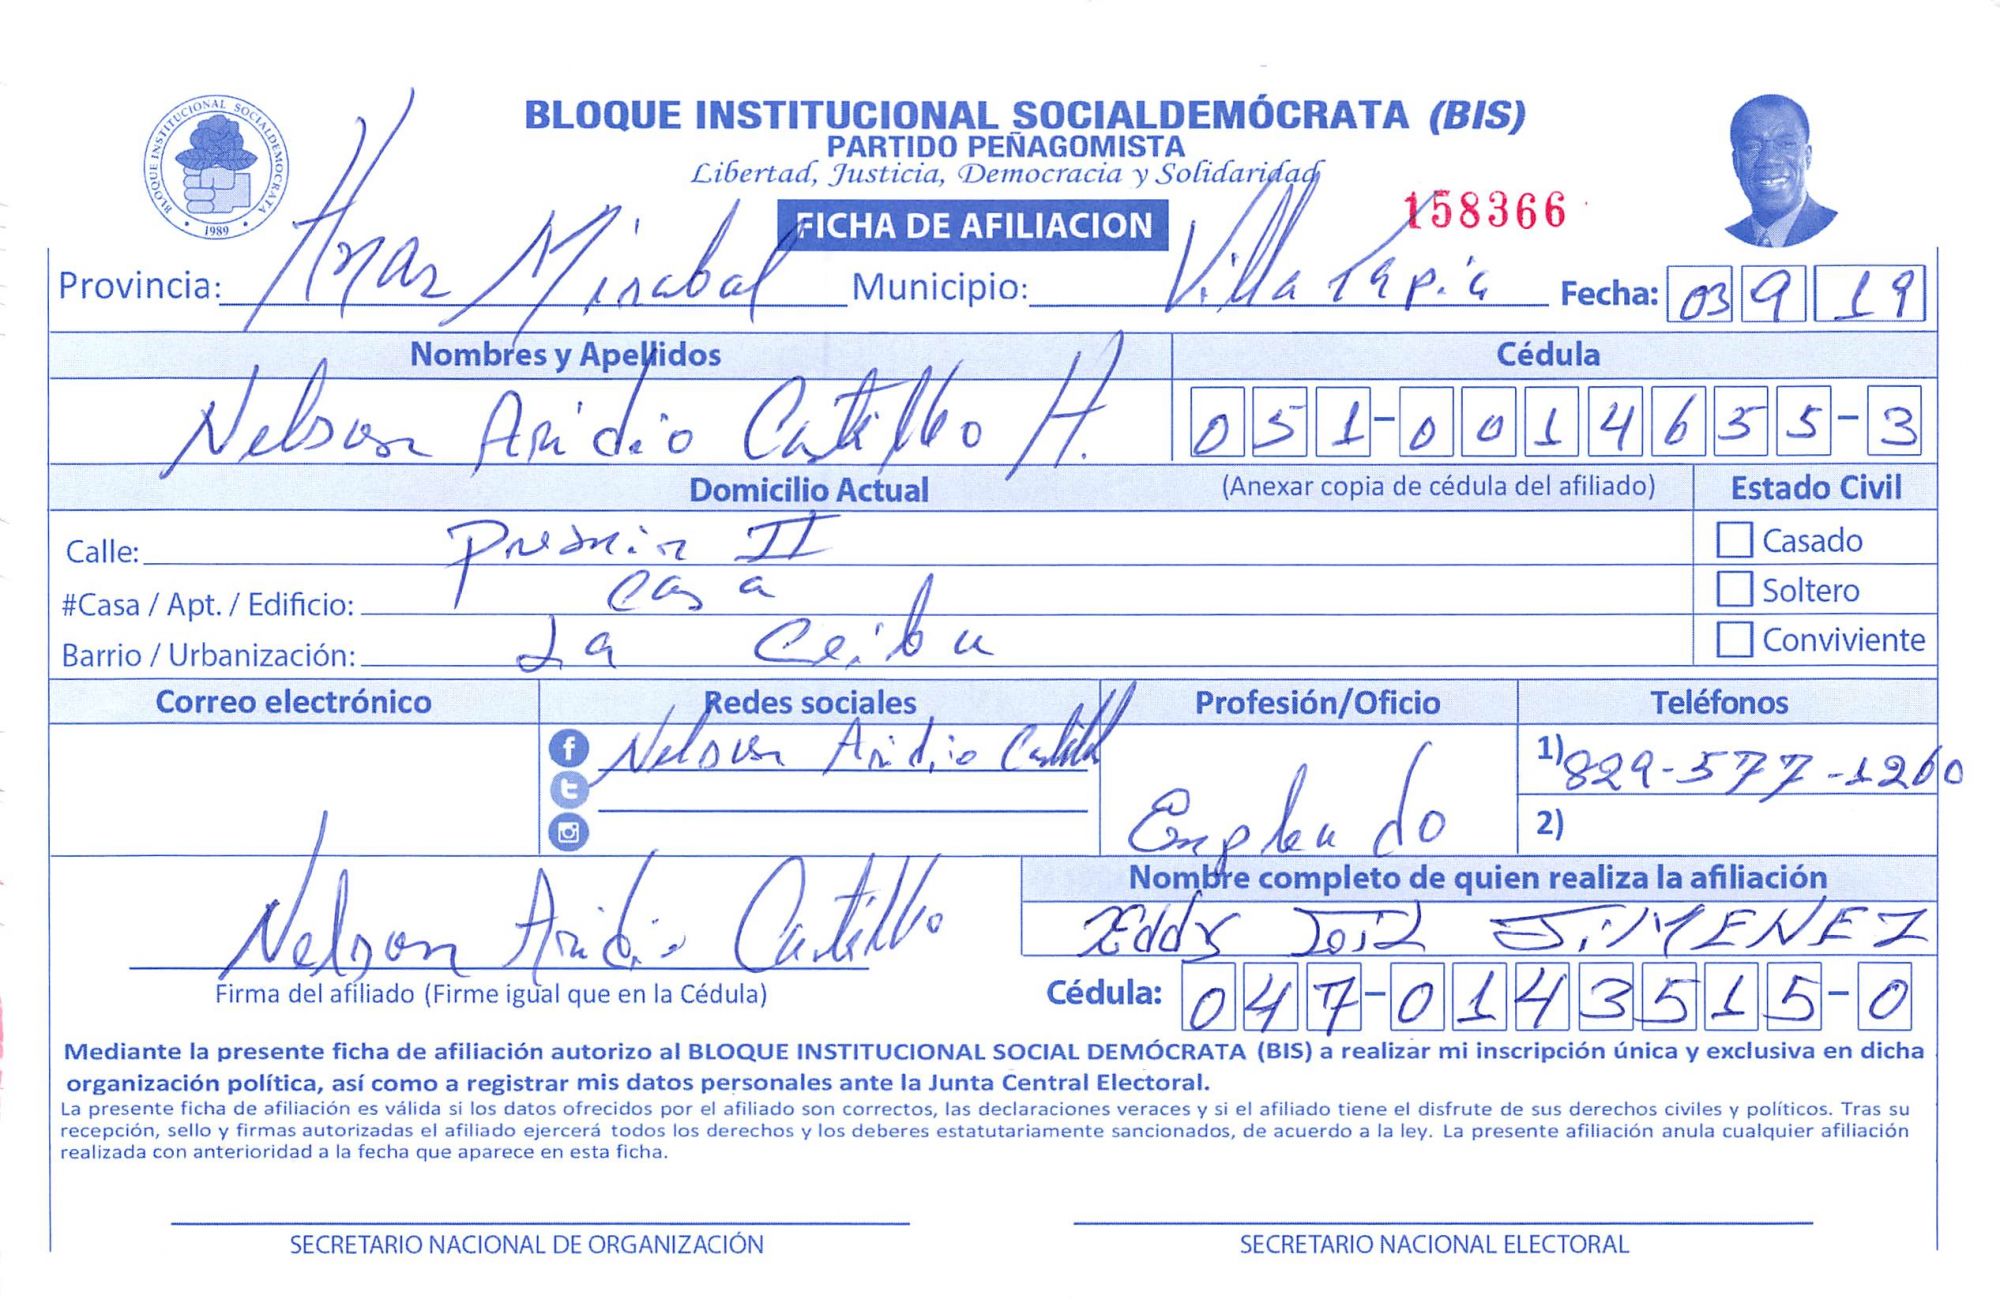 BLOQUE INSTITUCIONAL SOCIALDEMOCRATA
1989
BLOQUE INSTITUCIONAL SOCIALDEMÓCRATA (BIS)
PARTIDO PEÑAGOMISTA
Libertad, Justicia, Democracia y Solidaridad
FICHA DE AFILIACION
158366
Provincia: Hnas Mirabal Municipio: Villa Tapia Fecha: 03 9 19
Nombres y Apellidos Cédula
Nelson Aridio Castillo H. 051-0014655-3
Domicilio Actual (Anexar copia de cédula del afiliado) Estado Civil
Calle: II Casado
#Casa / Apt. / Edificio: casa Soltero
Barrio / Urbanización: La Ceiba Conviviente
Correo electrónico Redes sociales Profesión/Oficio Teléfonos
Nelson Aridio Castillo Empleado 1) 829-577-1260
2)
Nombre completo de quien realiza la afiliación
Nelson Aridio Castillo Eddy JiMENEZ
Firma del afiliado (Firme igual que en la Cédula) Cédula: 047-0143515-0
Mediante la presente ficha de afiliación autorizo al BLOQUE INSTITUCIONAL SOCIAL DEMÓCRATA (BIS) a realizar mi inscripción única y exclusiva en dicha
organización política, así como a registrar mis datos personales ante la Junta Central Electoral.
La presente ficha de afiliación es válida si los datos ofrecidos por el afiliado son correctos, las declaraciones veraces y si el afiliado tiene el disfrute de sus derechos civiles y políticos. Tras su
recepción, sello y firmas autorizadas el afiliado ejercerá todos los derechos y los deberes estatutariamente sancionados, de acuerdo a la ley. La presente afiliación anula cualquier afiliación
realizada con anterioridad a la fecha que aparece en esta ficha.
SECRETARIO NACIONAL DE ORGANIZACIÓN SECRETARIO NACIONAL ELECTORAL